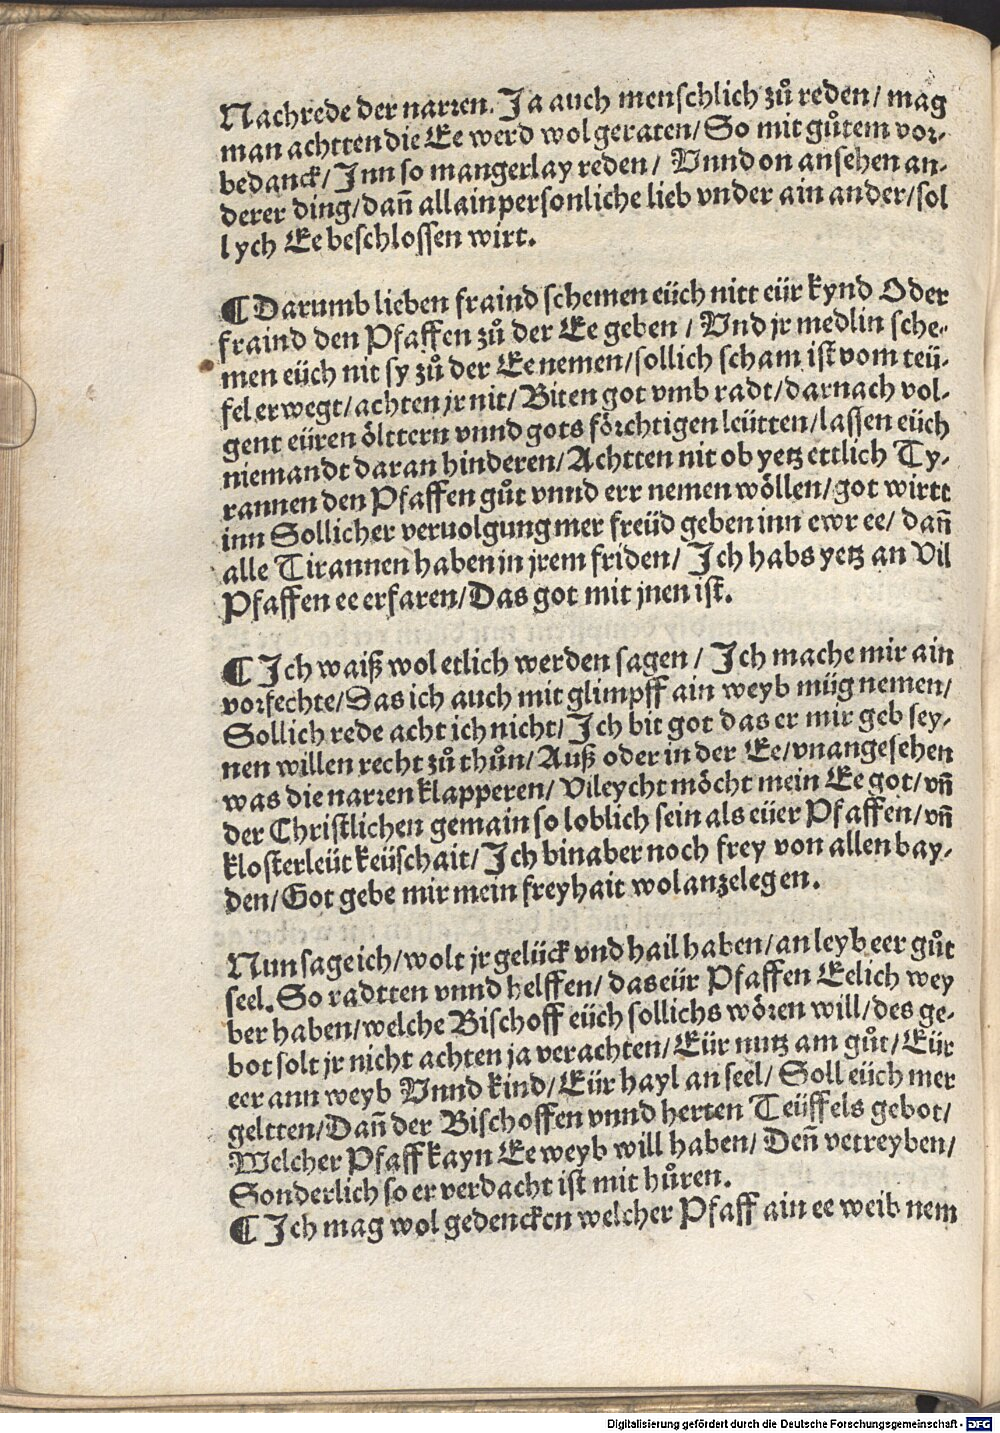 Nachrede der narren. Ja auch menschlich zů reden/ mag
man achtten die Ee werd wol geraten/ So mit gůtem vor-
bedanck/ Jnn so mangerlay reden/ Vnnd on ansehen an-
derer ding/ dañ allain personliche lieb vnder ain ander/ sol
lych Ee beschlossen wirt.
¶ Darumb lieben fraind schemen eüch nitt eür kynd Oder
fraind den Pfaffen zů der Ee geben / Vnd jr medlin sche-
men eüch nit sy zů der Ee nemen/ sollich scham ist vom teü-
fel erwegt/ achten jr nit/ Biten got vmb radt/ darnach vol-
gent eüren ölttern vnnd gots förchtigen leütten/ lassen eüch
niemandt daran hinderen/ Achtten nit ob yetz ettlich Ty-
rannen den Pfaffen gůt vnnd err nemen wöllen/ got wirtt
inn Sollicher veruolgung mer freüd geben inn ewr ee/ dañ
alle Tirannen haben in jrem friden/ Jch habs yetz an Vil
Pfaffen ee erfaren/ Das got mit jnen ist.
¶ Jch waiß wol etlich werden sagen / Jch mache mir ain
vorfechte/ Das ich auch mit glimpff ain weyb müg nemen/
Sollich rede acht ich nicht/ Jch bit got das er mir geb sey-
nen willen recht zů thůn/ Auß oder in der Ee/ vnangesehen
was die narren klapperen/ Vileycht möcht mein Ee got/ vñ
der Christlichen gemain so loblich sein als eüer Pfaffen/ vñ
klosterleüt keüschait/ Jch bin aber noch frey von allen bay-
den/ Got gebe mir mein freyhait wol anzelegen.
Nun sage ich/ wolt jr gelück vnd hail haben/ an leyb eer gůt
seel. So radtten vnnd helffen/ das eür Pfaffen Eelich wey
ber haben/ welche Bischoff eüch sollichs wören will/ des ge-
bot solt jr nicht achten ja verachten/ Eür nutz am gůt/ Eür
eer ann weyb Vnnd kind/ Eür hayl an seel/ Soll eüch mer
geltten/ Dañ der Bischoffen vnnd herren Teüffels gebot/
Welcher Pfaff kayn Eeweyb will haben/ Deñ vetreyben/
Sonderlich so er verdacht ist mit hůren.
¶ Jch mag wol gedencken welcher Pfaff ain ee weib nem
Digitalisierung gefördert durch die Deutsche Forschungsgemeinschaft - DFG